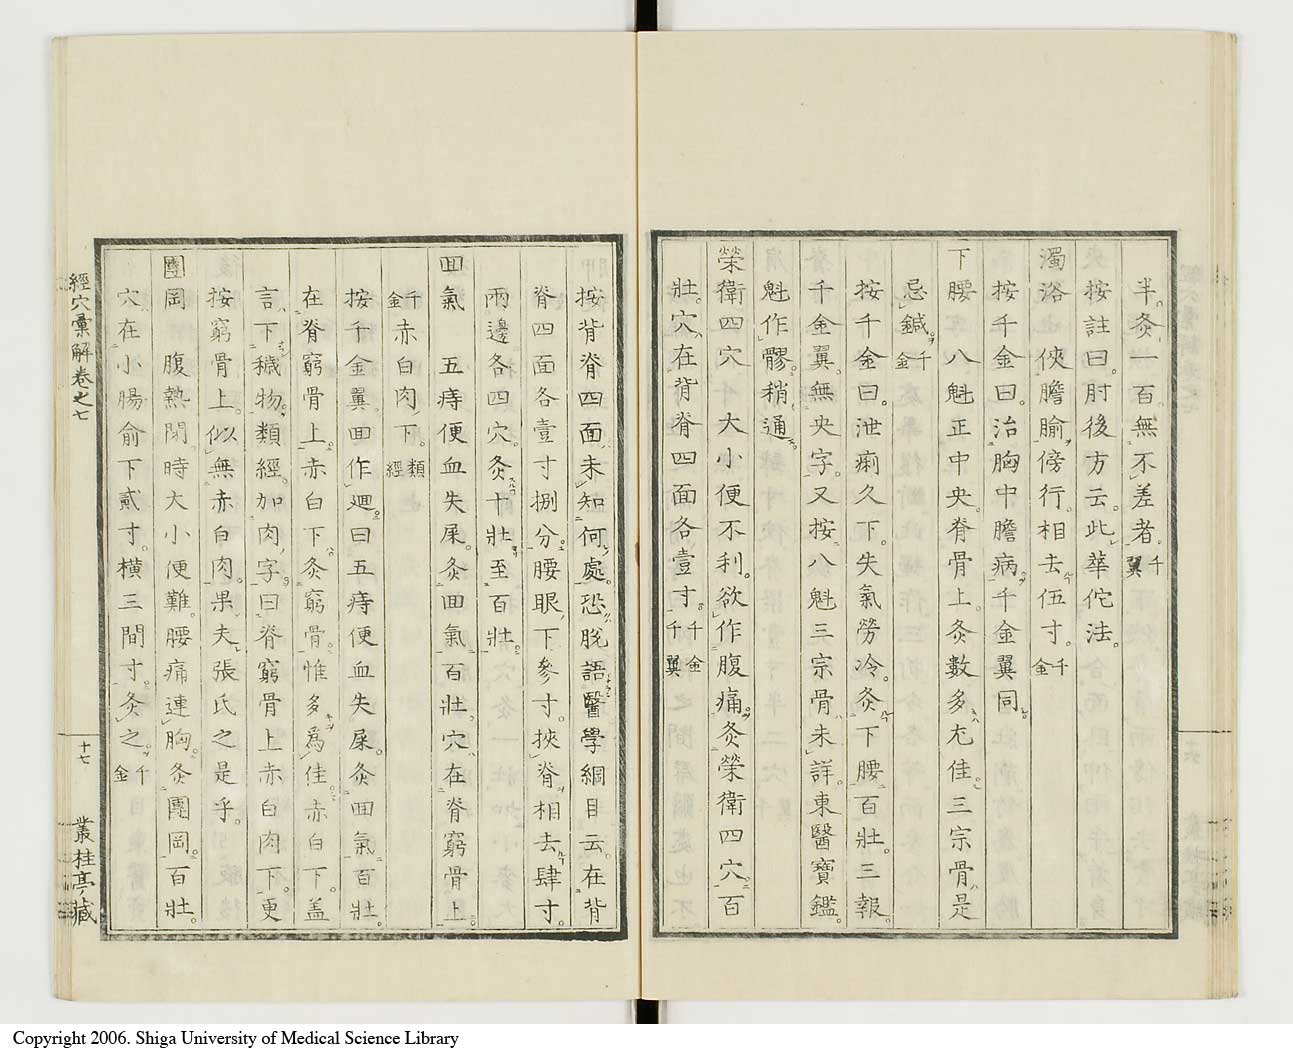 半。灸一百無不差者。千翼
按註曰。肘後方云。此華佗法。
濁浴 俠膽腧傍行。相去伍寸。千金
按千金曰。治胸中膽病。千金翼同。
下腰 八魁正中央。脊骨上。灸數多尤佳。三宗骨是
忌鍼。千金
按千金曰。泄痢久下。失氣勞冷。灸下腰百壯。三報。
千金翼無央字。又按八魁三宗骨未詳。東醫寶鑑。
魁作髎。稍通。
榮衛四穴 大小便不利。欲作腹痛。灸榮衛四穴。百
壯。穴在背脊四面各壹寸。千金千翼
按背脊四面。未知何處。恐脫語。醫學綱目云。在背
脊四面各壹寸捌分。腰眼下參寸。挾脊相去肆寸。
兩邊各四穴。灸十壯至百壯。
回氣 五痔便血失屎。灸回氣百壯。穴在脊窮骨上。
千金 赤白肉下。類經
按千金翼。回作迴。曰五痔便血失屎。灸回氣百壯。
在脊窮骨上。赤白下。灸窮骨。惟多爲佳。赤白下。盖
言下穢物。類經。加肉字曰。脊窮骨上赤白肉下。更
按窮骨上。似無赤白肉。果夫張氏之是乎。
團岡 腹熱閉。時大小便難。腰痛連胸。灸團岡百壯。
穴在小腸俞下貳寸。橫三間寸。灸之。千金
經穴彙解卷之七
十七
叢桂亭藏
Copyright 2006. Shiga University of Medical Science Library